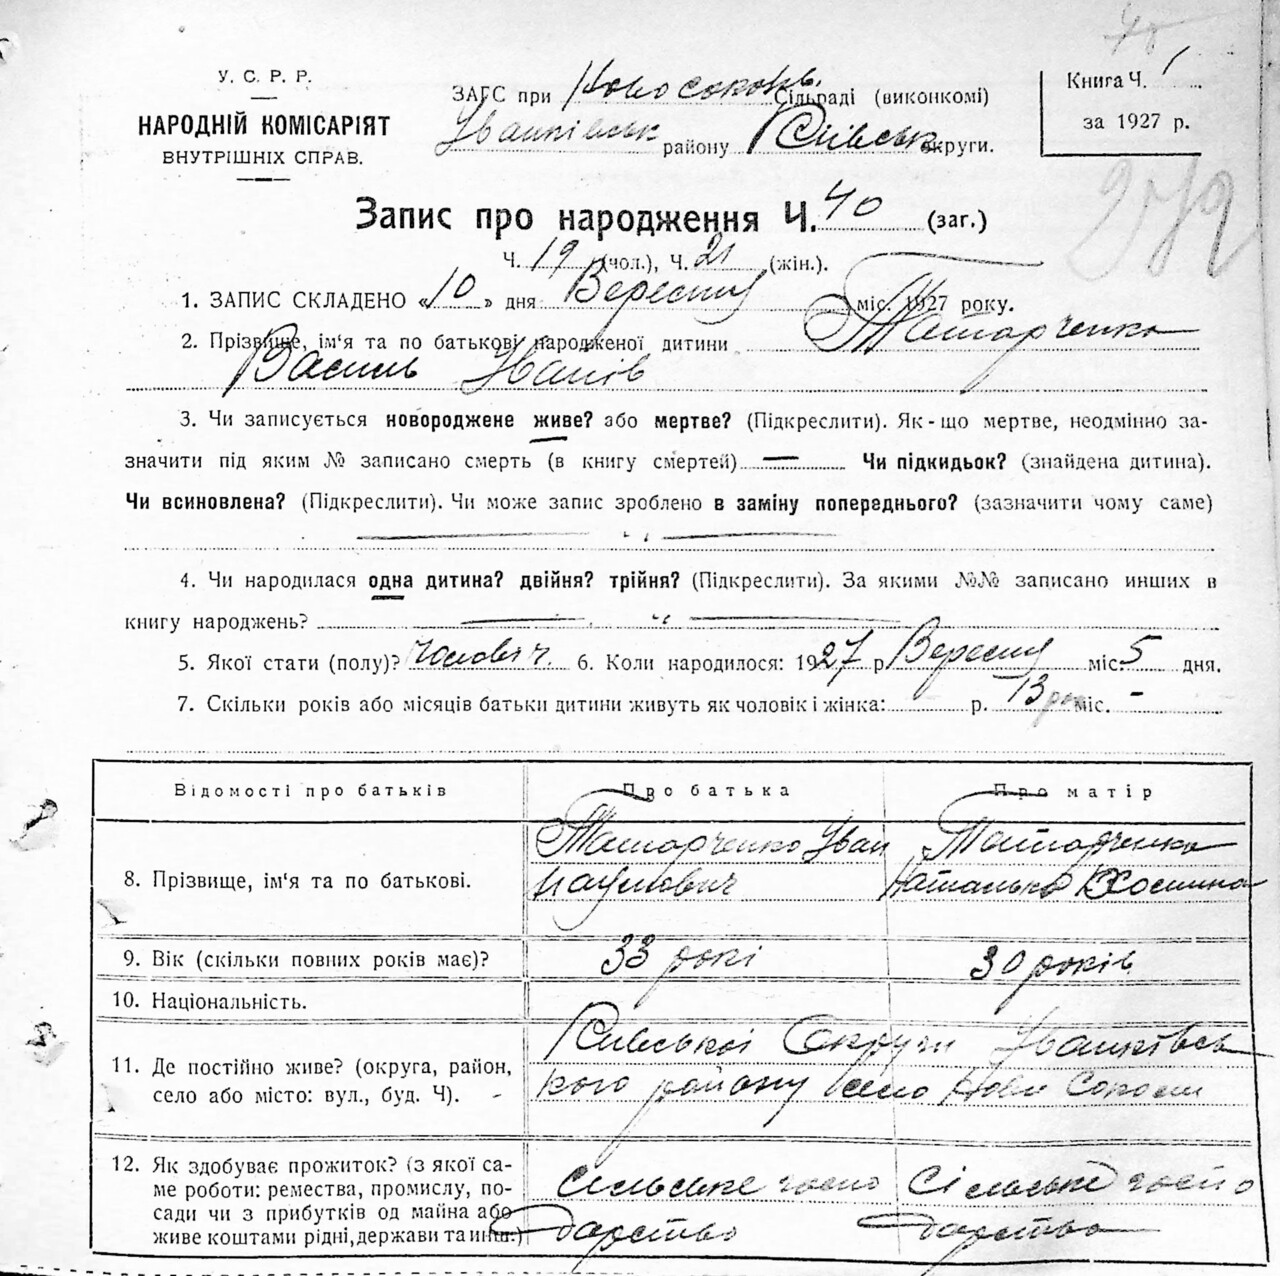 40
У. С. Р. Р.
НАРОДНІЙ КОМІСАРІЯТ
ВНУТРІШНІХ СПРАВ.
ЗАГС при Новосоков. Сільраді (виконкомі)
Іванківськ району Київськ округи.
Книга Ч. 1
за 1927 р.
Запис про народження Ч. 40 (заг.)
Ч. 19 (чол.), Ч. 21 (жін.).
1. ЗАПИС СКЛАДЕНО «10» дня Вересня міс. 1927 року.
2. Прізвище, ім'я та по батькові народженої дитини Татарченко
Василь Іванів
3. Чи записується новороджене живе? або мертве? (Підкреслити). Як-що мертве, неодмінно за-
значити під яким № записано смерть (в книгу смертей) — Чи підкидьок? (знайдена дитина).
Чи всиновлена? (Підкреслити). Чи може запис зроблено в заміну попереднього? (зазначити чому саме)
— " —
4. Чи народилася одна дитина? двійня? трійня? (Підкреслити). За якими №№ записано инших в
книгу народжень? — " —
5. Якої стати (полу)? Чоловіч. 6. Коли народилося: 1927 р Вересня міс. 5 дня.
7. Скільки років або місяців батьки дитини живуть як чоловік і жінка: р. 13 рок міс. -
Відомості про батьків Про батька Про матір
8. Прізвище, ім'я та по батькові. Татарченко Іван Татарченко
Наумович Наталька
9. Вік (скільки повних років має)? 33 рокі 30 років
10. Національність.
11. Де постійно живе? (округа, район, Київської Округи Іванківсь
село або місто: вул., буд. Ч). кого району село Нові Соколи
12. Як здобуває прожиток? (з якої са- Сільське госпо Сільське госпо
ме роботи: ремества, промислу, по- дарство дарство
сади чи з прибутків од майна або
живе коштами рідні, держави та инш.)